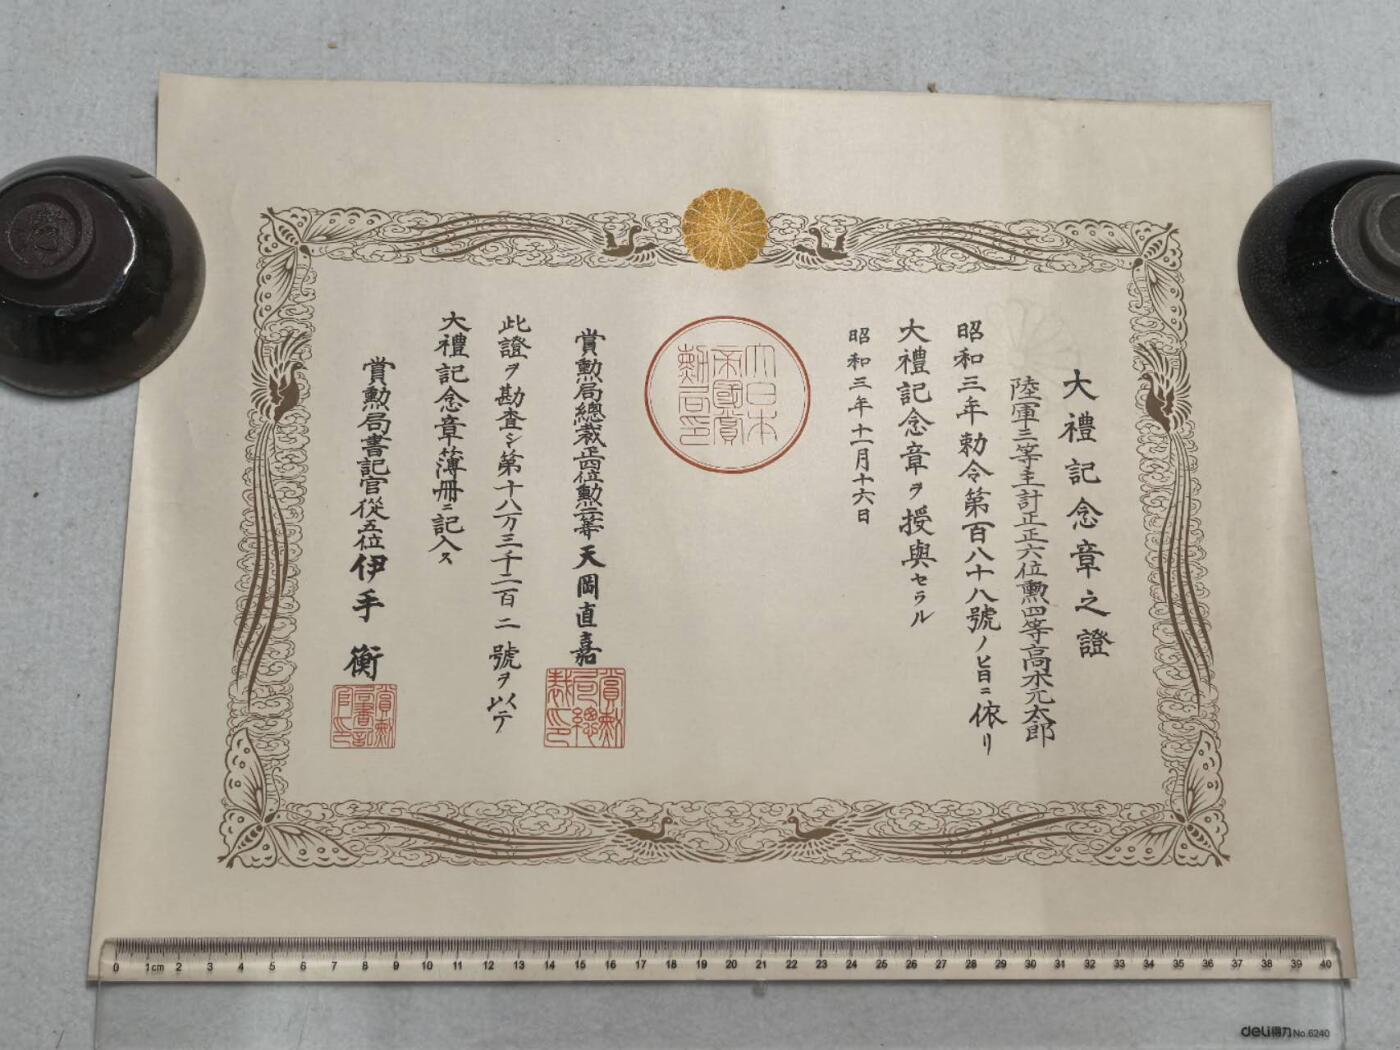 大禮記念章之證
陸軍三等主計正正六位勲四等高木元太郎
昭和三年勅令第百八十八號ノ旨ニ依リ
大禮記念章ヲ授與セラル
昭和三年十一月十六日
大日本
帝國賞
勲局印
賞勲局總裁正四位勲二等天岡直嘉
賞勲
局總
裁印
此證ヲ勘査シ第十八万三千二百二號ヲ以テ
大禮記念章簿冊ニ記入ス
賞勲局書記官從五位伊手衡
賞勲
局書記
官印
0 1cm 2 3 4 5 6 7 8 9 10 11 12 13 14 15 16 17 18 19 20 21 22 23 24 25 26 27 28 29 30 31 32 33 34 35 36 37 38 39 40
deli得力 No.6240